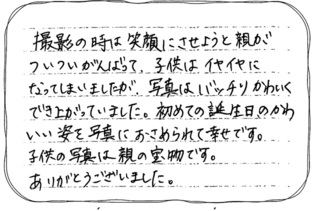 撮影の時は笑顔にさせようと親が
ついついがんばって、子供はイヤイヤに
なってしまいましたが、写真はバッチリかわいく
でき上がっていました。初めての誕生日のかわ
いい姿を写真におさめられて幸せです。
子供の写真は親の宝物です。
ありがとうございました。